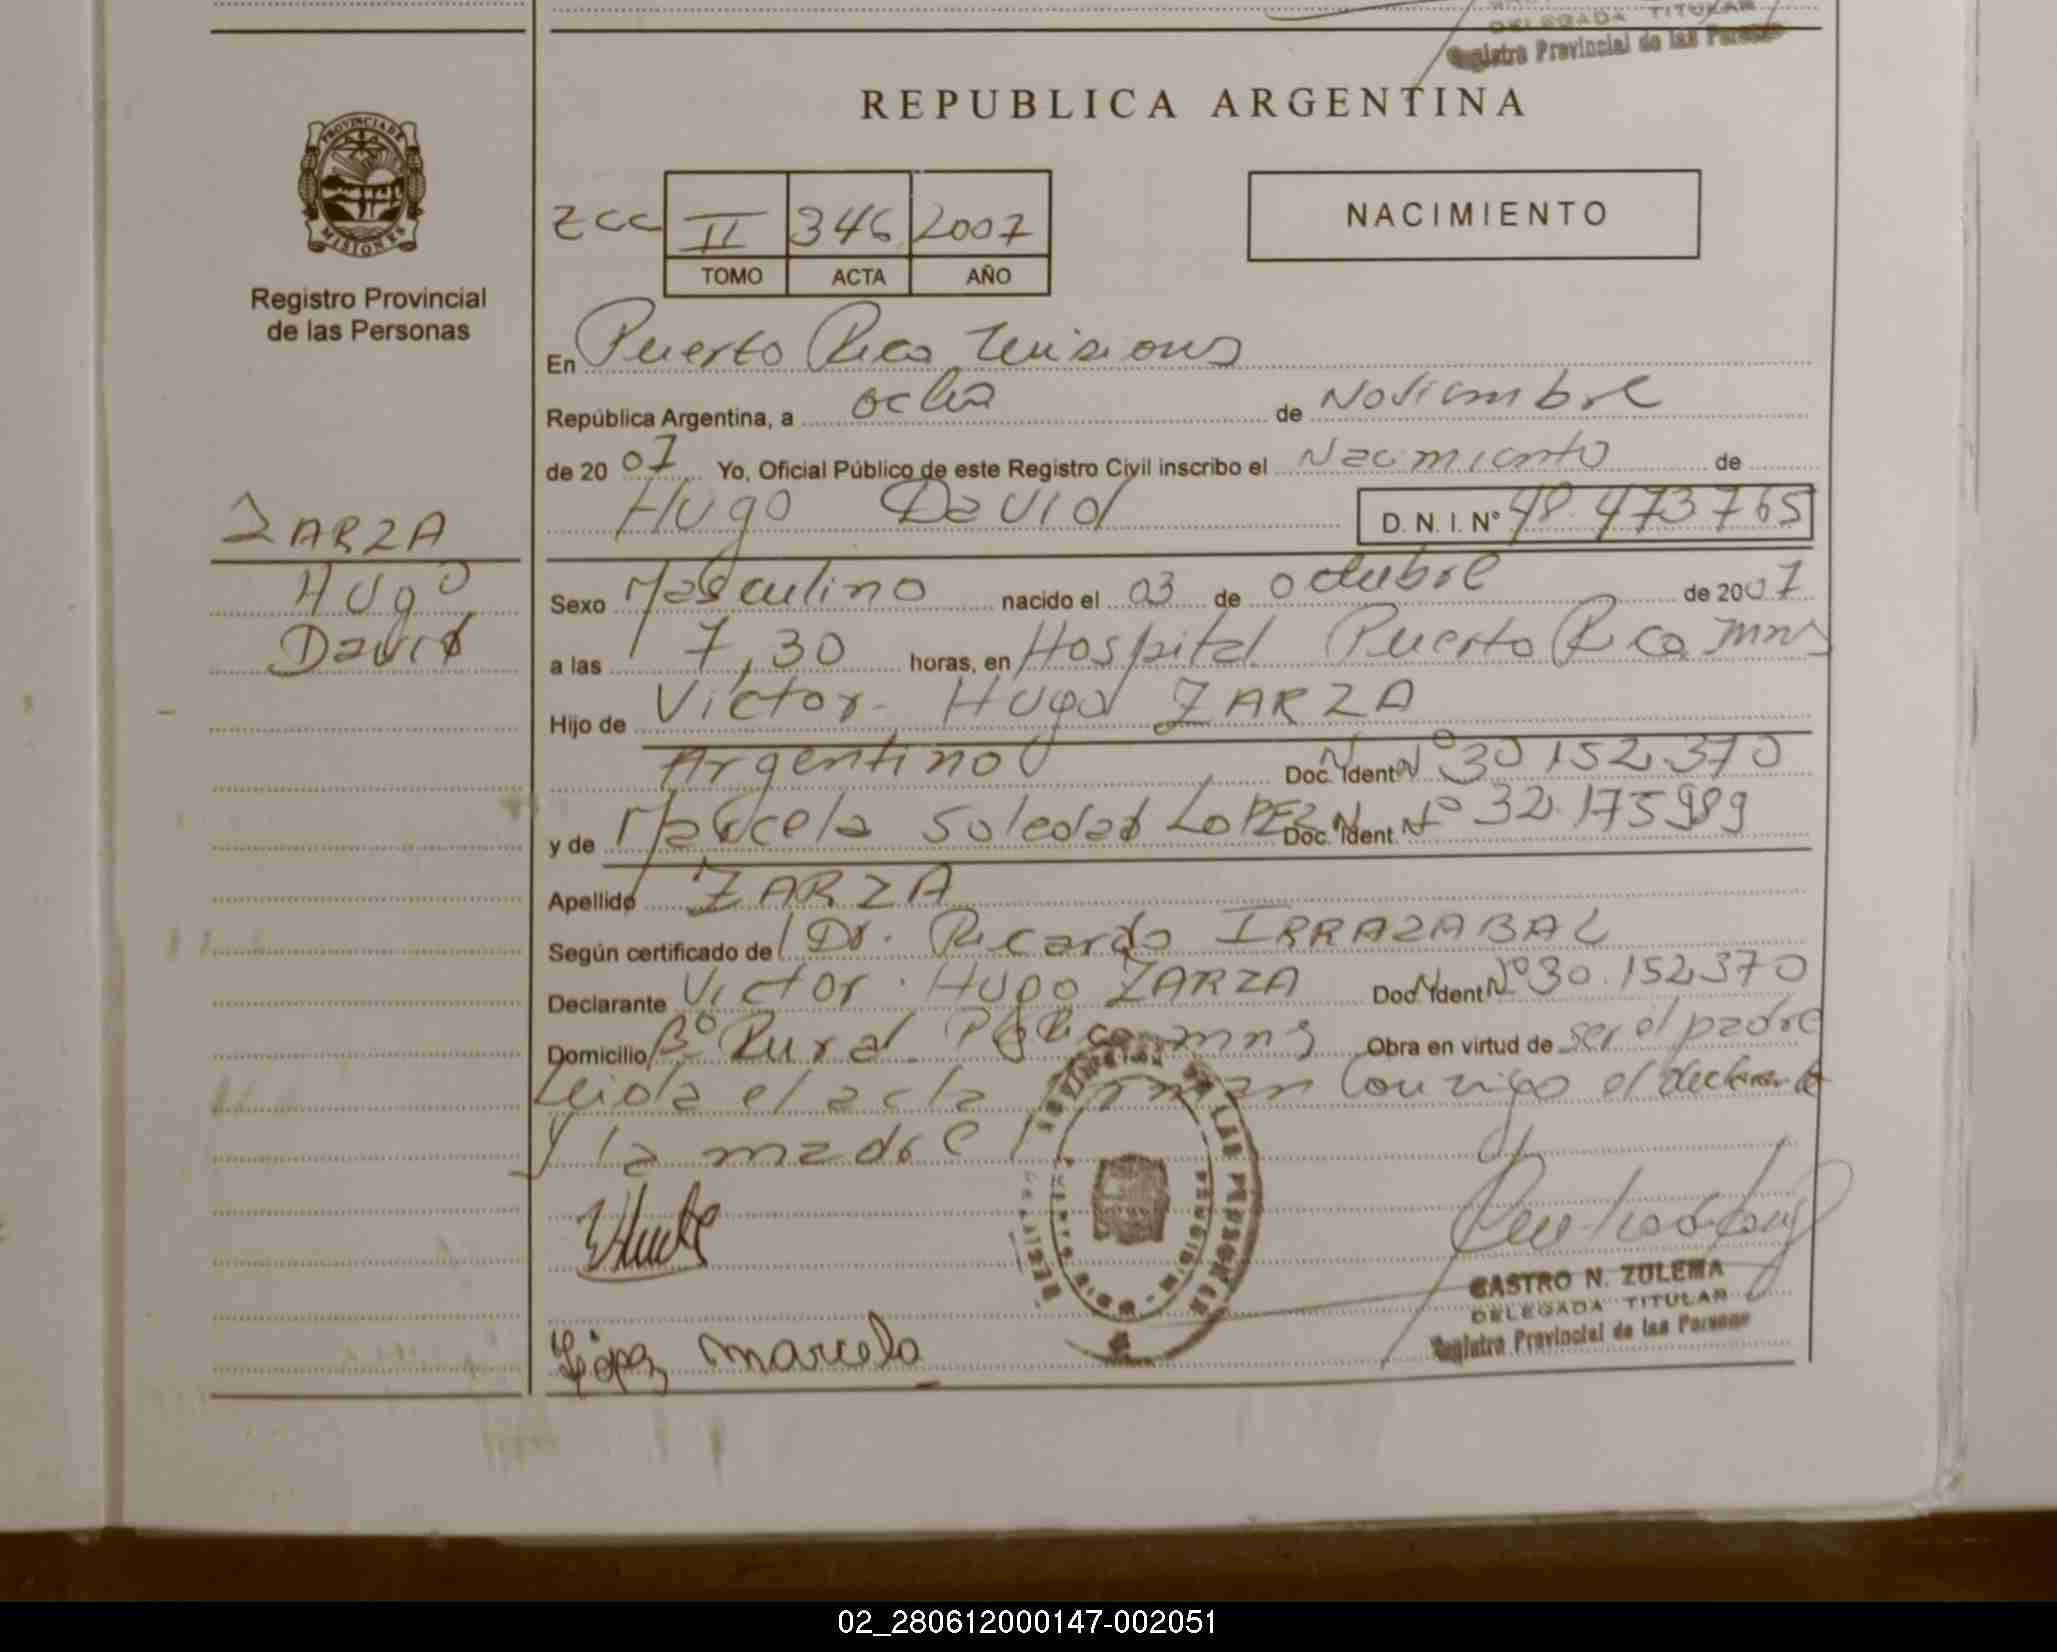 DELEGADA TITULAR
Registro Provincial de las Persona
REPUBLICA ARGENTINA
PROVINCIA DE
MISIONES
Registro Provincial
de las Personas
zcc II 346 2007
TOMO ACTA AÑO
NACIMIENTO
En Puerto Rico Misiones
República Argentina, a ocho de Noviembre
de 20 07 Yo, Oficial Público de este Registro Civil inscribo el Nacimiento de
Hugo David D. N. I. N° 48.473765
ZARZA
Hugo
David
Sexo Masculino nacido el 03 de octubre de 2007
a las 7,30 horas, en Hospital Puerto Rico mns
Hijo de Victor Hugo ZARZA
Argentino Doc. Ident. N N° 30.152.370
y de Marcela Soledad LOPEZ Doc. Ident. N N° 32.175989
Apellido ZARZA
Según certificado de Dr. Ricardo IRRAZABAL
Declarante Victor Hugo ZARZA Doc. Ident N N° 30.152370
Domicilio B° Rural Pto Rico mns Obra en virtud de ser el padre
Leida el acta firman conmigo el declarante
y la madre
López Marcela
CASTRO N. ZULEMA
DELEGADA TITULAR
Registro Provincial de las Persona
02_280612000147-002051